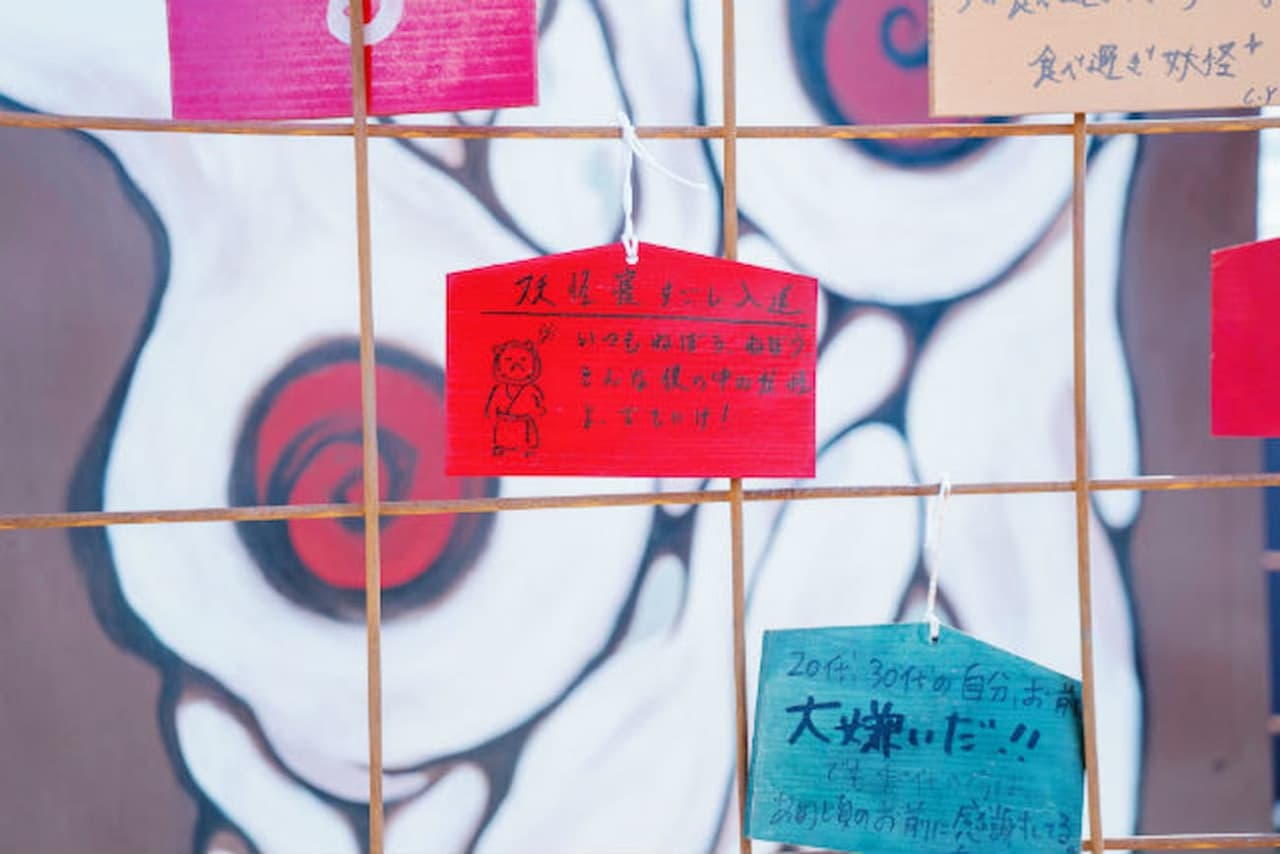 食べ過ぎ妖怪
妖怪寝すごし入道
いつもねぼう、ねぼう
そんな僕の中の妖怪
よ、でていけ!
20代、30代の自分、お前
大嫌いだ!!
でも
あの頃のお前に感謝してる